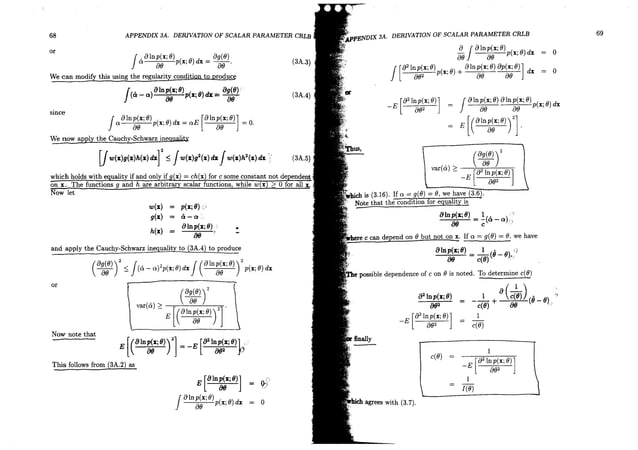 68 APPENDIX 3A. DERIVATION OF SCALAR PARAMETER CRLB
or
∫ α̂ ∂ ln p(x; θ)/∂θ p(x; θ) dx = ∂g(θ)/∂θ. (3A.3)
We can modify this using the regularity condition to produce
∫ (α̂ − α) ∂ ln p(x; θ)/∂θ p(x; θ) dx = ∂g(θ)/∂θ (3A.4)
since
∫ α ∂ ln p(x; θ)/∂θ p(x; θ) dx = αE [∂ ln p(x; θ)/∂θ] = 0.
We now apply the Cauchy-Schwarz inequality
[∫ w(x)g(x)h(x) dx]² ≤ ∫ w(x)g²(x) dx ∫ w(x)h²(x) dx (3A.5)
which holds with equality if and only if g(x) = ch(x) for c some constant not dependent
on x. The functions g and h are arbitrary scalar functions, while w(x) ≥ 0 for all x.
Now let
w(x) = p(x; θ)
g(x) = α̂ − α
h(x) = ∂ ln p(x; θ)/∂θ
and apply the Cauchy-Schwarz inequality to (3A.4) to produce
(∂g(θ)/∂θ)² ≤ ∫ (α̂ − α)² p(x; θ) dx ∫ (∂ ln p(x; θ)/∂θ)² p(x; θ) dx
or
var(α̂) ≥ (∂g(θ)/∂θ)² / E [(∂ ln p(x; θ)/∂θ)²].
Now note that
E [(∂ ln p(x; θ)/∂θ)²] = −E [∂² ln p(x; θ)/∂θ²].
This follows from (3A.2) as
E [∂ ln p(x; θ)/∂θ] = 0
∫ ∂ ln p(x; θ)/∂θ p(x; θ) dx = 0
APPENDIX 3A. DERIVATION OF SCALAR PARAMETER CRLB 69
∂/∂θ ∫ ∂ ln p(x; θ)/∂θ p(x; θ) dx = 0
∫ [∂² ln p(x; θ)/∂θ² p(x; θ) + ∂ ln p(x; θ)/∂θ ∂p(x; θ)/∂θ] dx = 0
or
−E [∂² ln p(x; θ)/∂θ²] = ∫ ∂ ln p(x; θ)/∂θ ∂ ln p(x; θ)/∂θ p(x; θ) dx
= E [(∂ ln p(x; θ)/∂θ)²].
Thus,
var(α̂) ≥ (∂g(θ)/∂θ)² / −E [∂² ln p(x; θ)/∂θ²]
which is (3.16). If α = g(θ) = θ, we have (3.6).
Note that the condition for equality is
∂ ln p(x; θ)/∂θ = 1/c (α̂ − α).
where c can depend on θ but not on x. If α = g(θ) = θ, we have
∂ ln p(x; θ)/∂θ = 1/c(θ) (θ̂ − θ).
The possible dependence of c on θ is noted. To determine c(θ)
∂² ln p(x; θ)/∂θ² = −1/c(θ) + ∂(1/c(θ))/∂θ (θ̂ − θ)
−E [∂² ln p(x; θ)/∂θ²] = 1/c(θ)
or finally
c(θ) = 1 / −E [∂² ln p(x; θ)/∂θ²]
= 1/I(θ)
which agrees with (3.7).